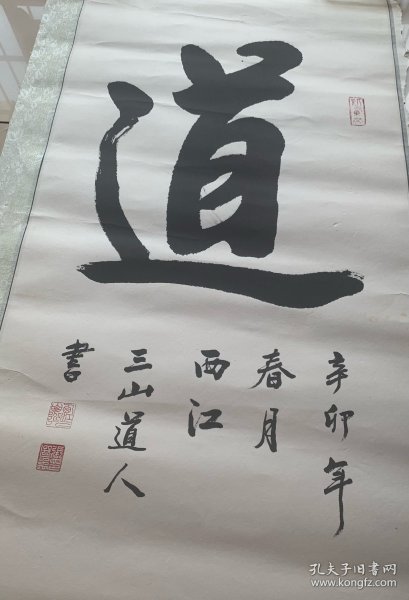 道
辛卯年
春月
西江
三山道人
書
孔夫子旧书网
www.kongfz.com